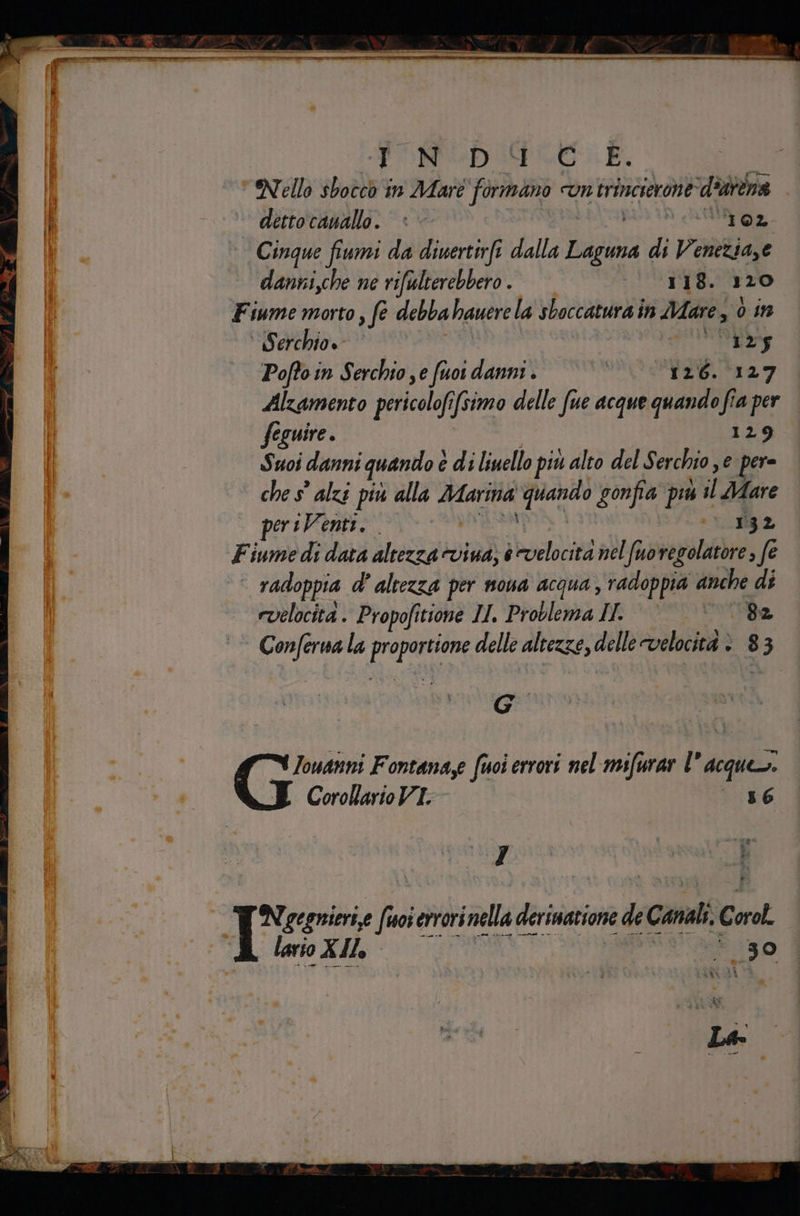 INDICE.
Nello sbocco in Mare formano vn trincierone d'arena
detto cauallo. 102
Cinque fiumi da diuertirsi dalla Laguna di Venezia, e
danni, che ne risulterebbero. 118. 120
Fiume morto, se debba hauere la sboccatura in Mare, ò in
Serchio. 125
Posto in Serchio, e suoi danni. 126. 127
Alzamento pericolosissimo delle sue acque quando sia per
seguire. 129
Suoi danni quando è di liuello più alto del Serchio, e per=
che s' alzi più alla Marina quando gonfia più il Mare
per i Venti. 132
Fiume di data altezza viua, è velocità nel suo regolatore, se
radoppia d' altezza per noua acqua, radoppia anche di
velocità. Propositione II. Problema II. 82
Conserua la proportione delle altezze, delle velocità. 83
G
GIouanni Fontana, e suoi errori nel misurar l' acque.
Corollario VI. 16
I
INgegnieri, e suoi errori nella deriuatione de Canali. Corol.
lario XII. 30
La-